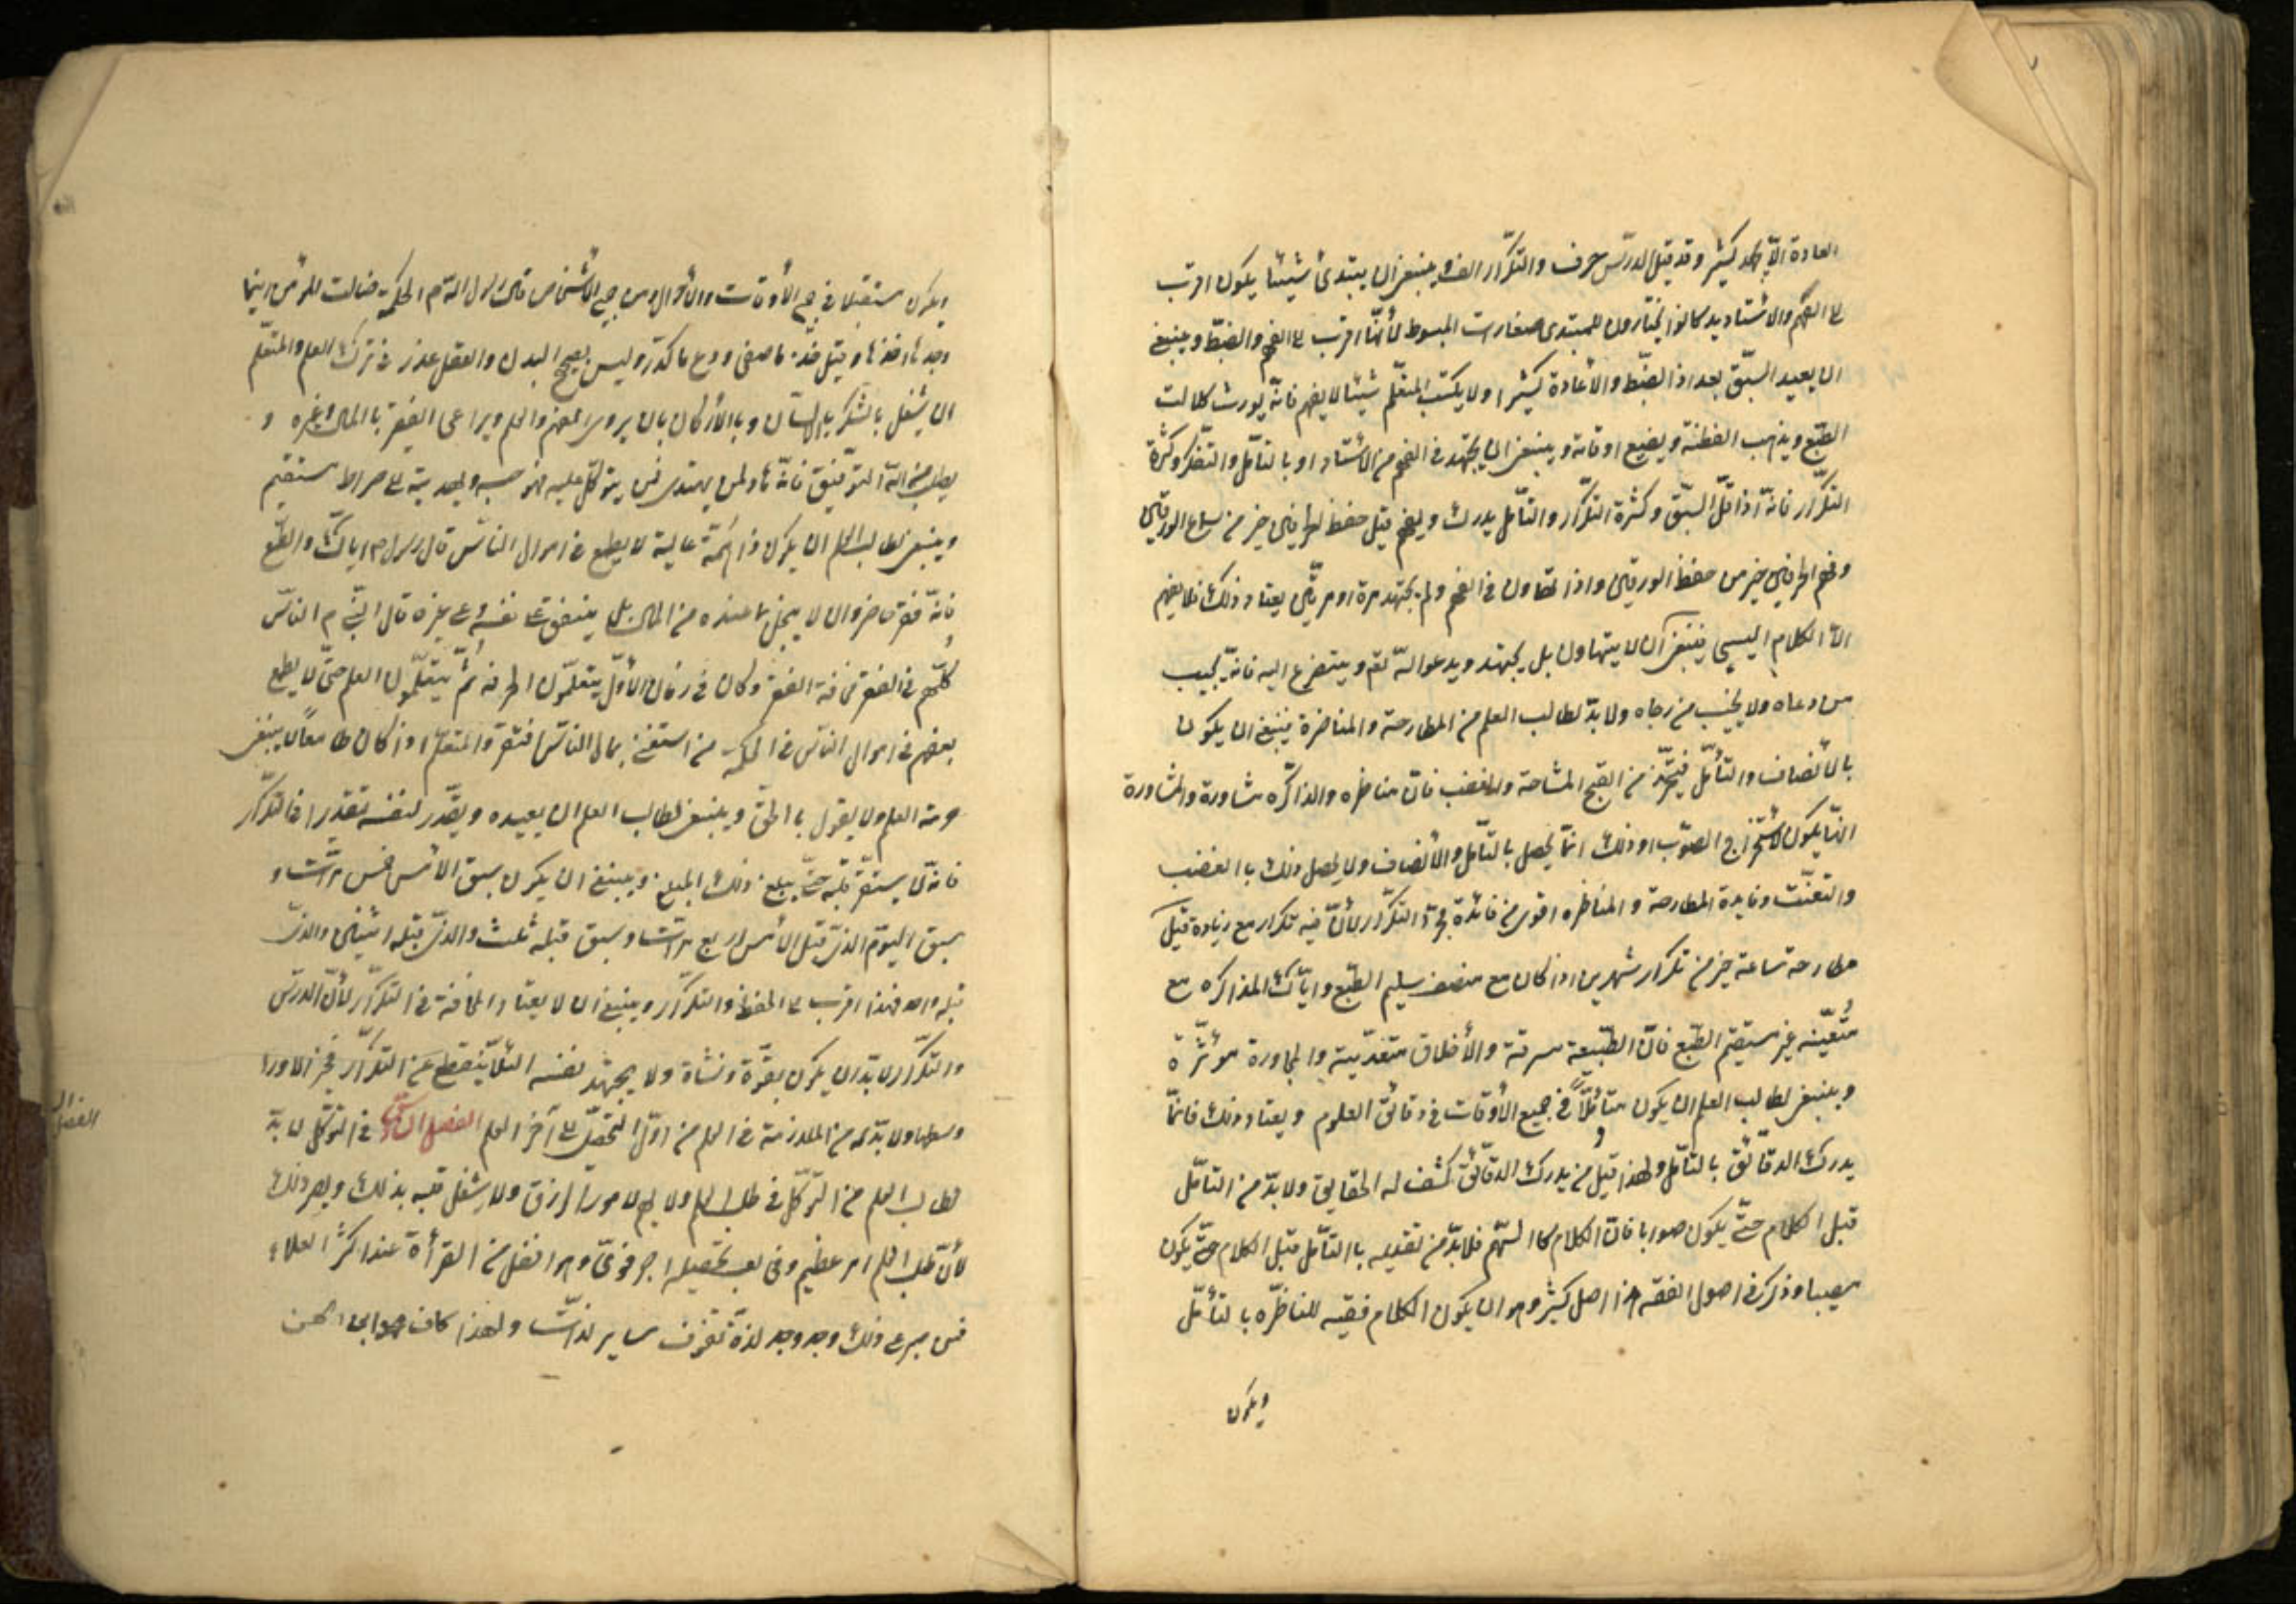 العادة الّا بجهد كثير وقد قيل الدرس حرف والتكرّار الف وينبغى ان يبتدئ شيئا يكون اقرب
الى الفهم والاستاديد كانوا يختارون للمبتدى صغارات المبسوط لأنّها اقرب الى الفهم والضبّط وينبغى
ان يعيد السبّق بعد اذا الضبّط والاعادة كثيرا ولا يكتب المتعّلم شيئا لا يفهم فانّه يورث كلالت
الطبّع ويذهب الفطنة ويضيع اوقاته وينبغى ان يجتهد فى الفهم من الأستاد او بالتأمّل والتفكّر وكثرة
التكرّار فانّه اذا قلّ السبّق وكثرة التكرّار والتأمّل يدرك ويفهم قيل حفظ حرفين خير من سماع الورقين
وفهم حرفين خير من حفظ الورقين واذا تهاون فى الفهم ولم يجتهد مرة او مرّتين يعتاد ذلك فلا يفهم
الّا الكلام اليسير فينبغى ان لا يتهاون بل يجتهد ويدعو اللّه تعم ويتضرع اليه فانّه يجيب
من دعاه ولا يخيب من رجاه ولا بدّ لطالب العلم من المطارحة والمناضرة فينبغى ان يكون
بالأنصاف والتأمّل فيتحرّز من القبح المشاحة ولا لغضب فانّ مناظره والمذاكّره مشاورة والمشاورة
انّما يكون لأستخراج الصوّب او ذلك انّما يحصل بالتأمّل والأنصاف ولا يحصل ذلك باالغضب
والتعنّت وفايدة المطارحة والمناظره اقوى من فائدة مجرّد التكرّار لأنّ فيه تكرار مع زيادة قيل
مطارحة ساعة خير من تكرار شهرين اذا كان مع منصف سليم الطبّع وايّاك المذاكره مع
متعيّنه غير مستقيم الطبّع فانّ الطبّيعة مسرقة والأخلاق متعدّيية والمجاورة موثّرة
وينبغى لطالب العلم ان يكون متأملًا فى جميع الأوقات فى دقائق العلوم ويعتاد ذلك فانّما
يدرك الدقائق بالتأمّل ولهذا قيل من يدرك الدقائق كشف له الحقايق ولا بدّ من التأمّل
قبل الكلام حتّى يكون صوابا فانّ الكلام كاالسّهم فلا بدّ من تقديمه باالتأمّل قبل الكلام حتّى يكون
مصيبا وذكر فى اصول الفقه هذا اصل كثير وهو ان يكون الكلام فقيه للناظّره بالتأمّل
ويكون
ويكون مستقبلا فى جميع الأوقات والأحوال ومن جميع الأشخاص قال رسول اللّه م الحكمة ضالت المؤمن اينما
وجدها اخذها وقيل خذ ما صفى ودع ما كدّر وليس لصحيح البدن والعقل عذر فى ترك العلم والمتعّلم
ان يشغل بالشكر باللسان وباالأركان بان يروى الفهم والعلم ويراعى الفقير باالمال وغيره و
يطلب من اللّه التوّفيق فانّه هاد لمن يهتدى فمن يتوكّل عليه فهو حسبه ويهديه الى صراط مستقيم
وينبغى لطالب العلم ان يكون ذا همّة عالية لا يطمع فى اموال النّاس قال رسول م اياك والطّمع
فانّه فقر حاضر وان لا يبخل بما عنده من المال بل ينفق على نفسه وعلى غيره قال النّبى م النّاس
كلّهم فى الفقر مخافة الفقر وكان فى زمان الأوّل يتعلّمون الحرفة ثمّ يتعلّمون العلم حتّى لا يطمع
بعضهم فى اموال النّاس فى الحكمة من استغنى بمال النّاس افتقر والمتعلّم اذا كان طامعا لا يبقى
حرمة العلم ولا يقول باالحقّ وينبغى لطالب العلم ان يعيده ويقدّر لنفسه تقديرا فى التكرّار
فانّه لا يستقرّ قلبه حتّى يبلغ ذلك المبلغ وينبغى ان يكون سبق الأمس خمس مرّات و
سبق اليوم الّذى قبل الأمس اربع مرّات وسبق قبله ثلث والّذى قبله اثنين والّذى
قبله واحد فهذا اقرب الى الحفظ والتكرّار وينبغى ان لا يعتاد المخافة فى التكرّار لأنّ الدرس
والتكّرار لا بدّ ان يكون بقوّة ونشاة ولا يجتهد نفسه لئلّا ينقطع عن التكرّار فخير الاورا
وسطها ولا بدّ له من الملازمة فى العلم من اوّل التحصّل الى آخر العلم الفصل السادس فى التوكّل لا بدّ
لطالب العلم من التوّكّل فى طلب العلم ولا يهم لامور الرزق ولا يشغل قلبه بذلك ويصبر ذلك
لأنّ طلب العلم امر عظيم وفى تعب تحصيله اجر قوىّ وهو افضل من القرأة عند اكثر العلماء
فمن صبر على ذلك وجد وجد لذة تفوق ساير لذّات ولهذا كان
الفصل